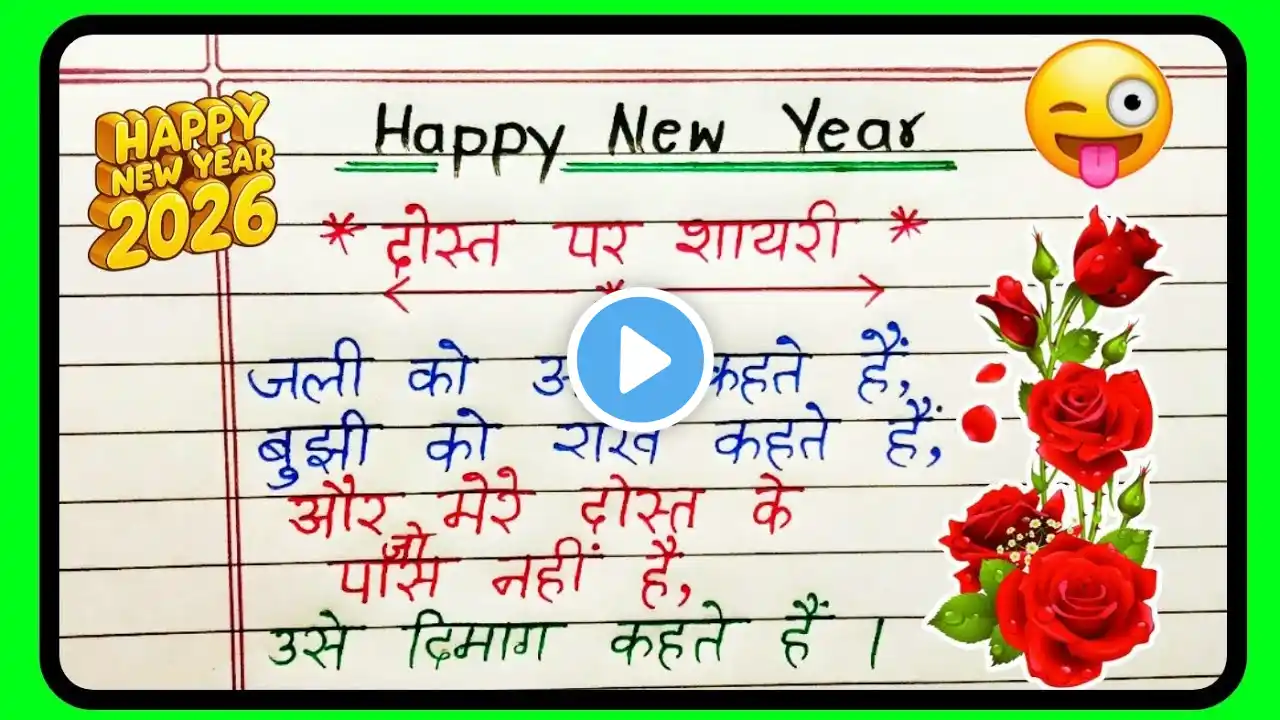 HAPPY
NEW YEAR
2026
Happy New Year
* दोस्त पर शायरी *
जली को कहते हैं,
बुझी को राख कहते हैं,
और मेरे दोस्त के
जो
पास नहीं है,
उसे दिमाग कहते हैं ।